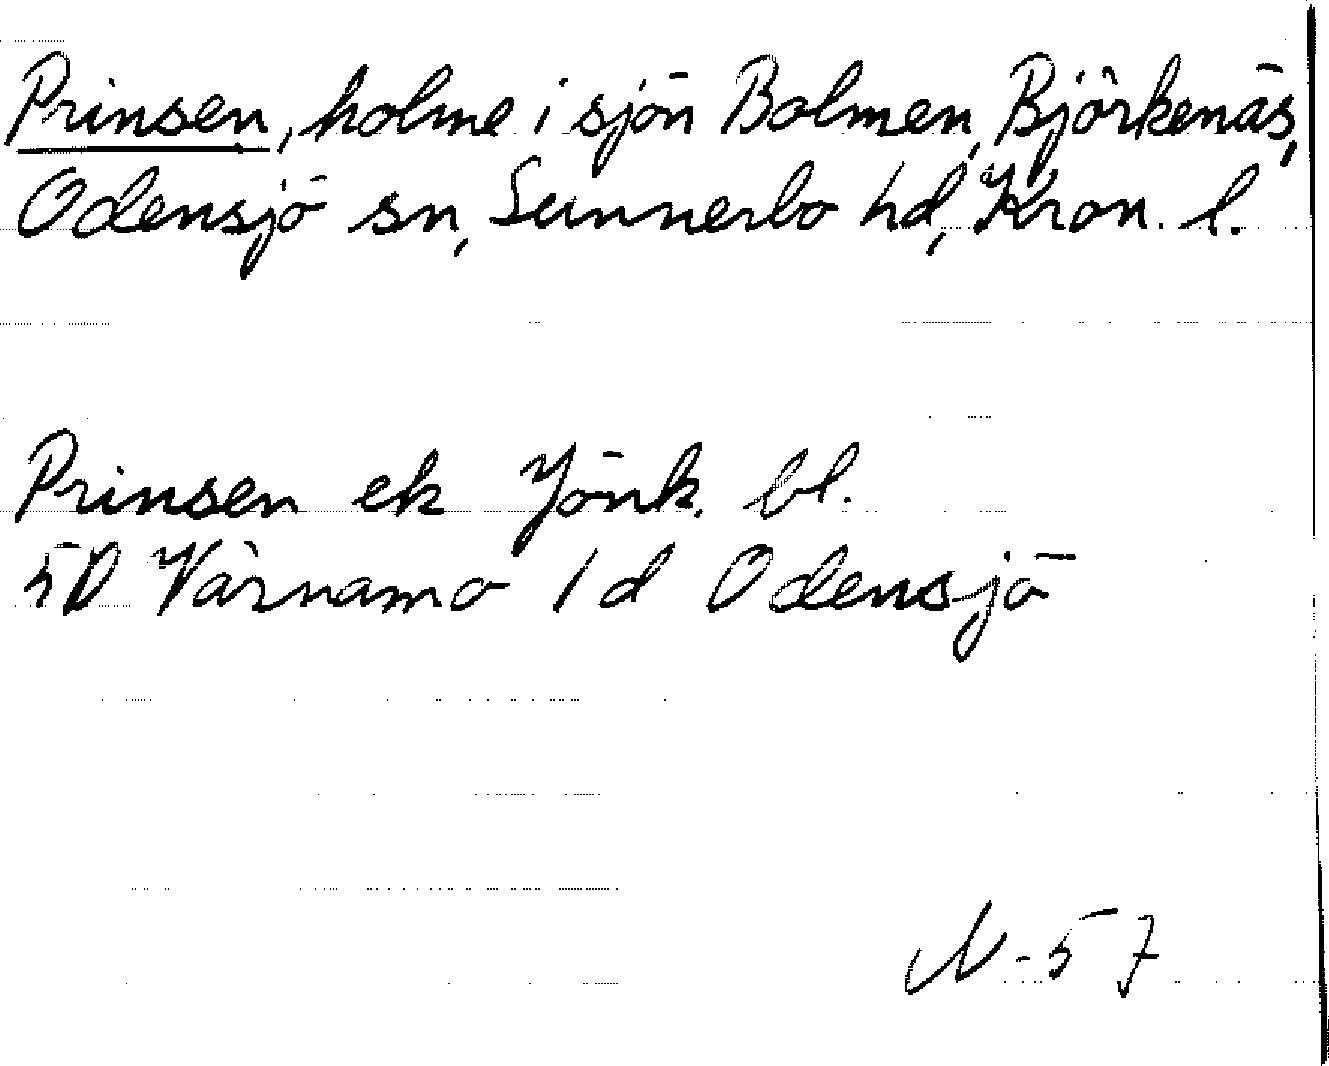 Prinsen, holme i sjön Bolmen, Björkenäs,
Odensjö sn, Sunnerbo hd, Kron. l.
Prinsen ek Jönk. bl.
5D Värnamo 1d Odensjö
N-57